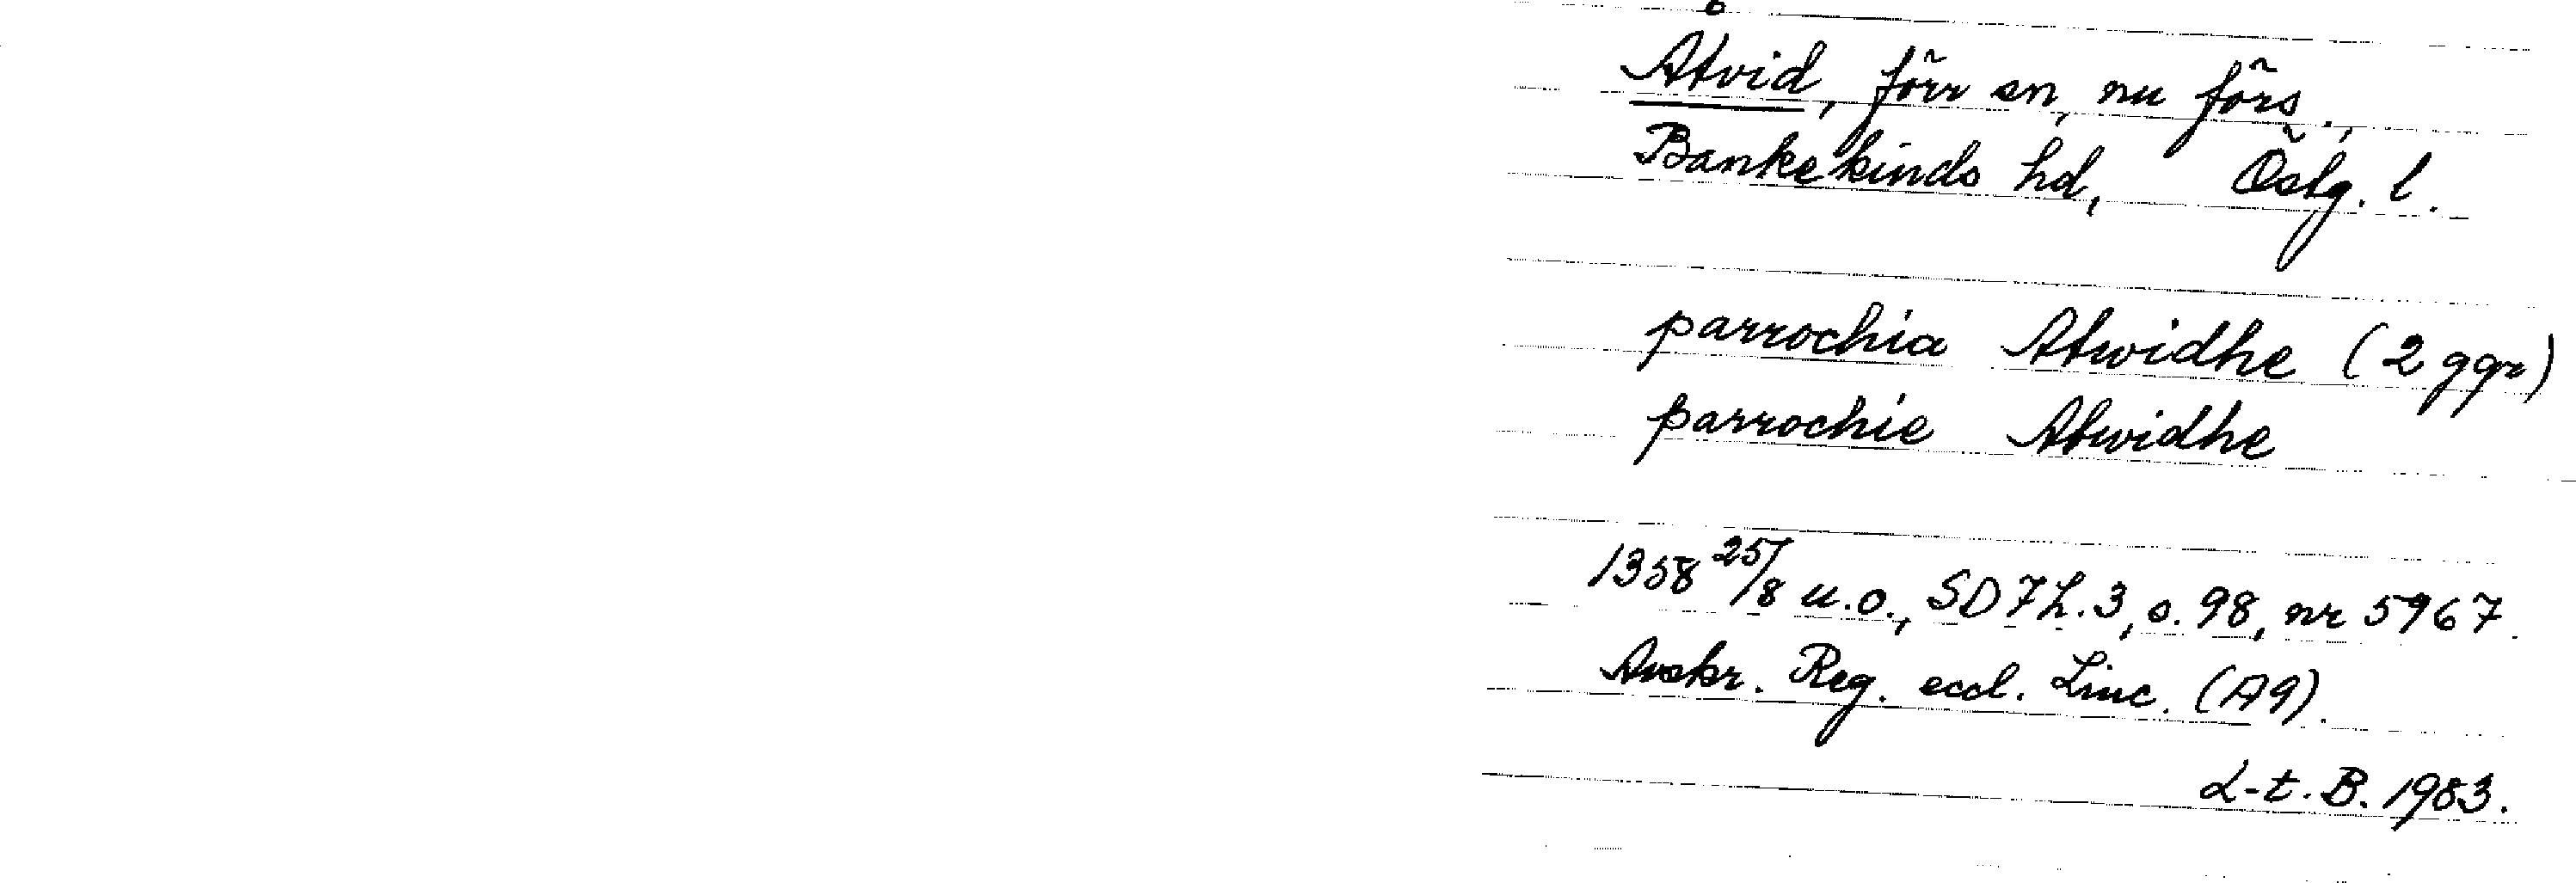 Åtvid, förr sn, nu förs.,
Bankekinds hd, Östg. l.
parrochia Atwidhe (2 ggr)
parrochie Atwidhe
1358 25/8 u.o., SD 7 h. 3, s. 98, nr 5967.
Avskr. Reg. eccl. Linc. (A9).
L-t. B. 1983.